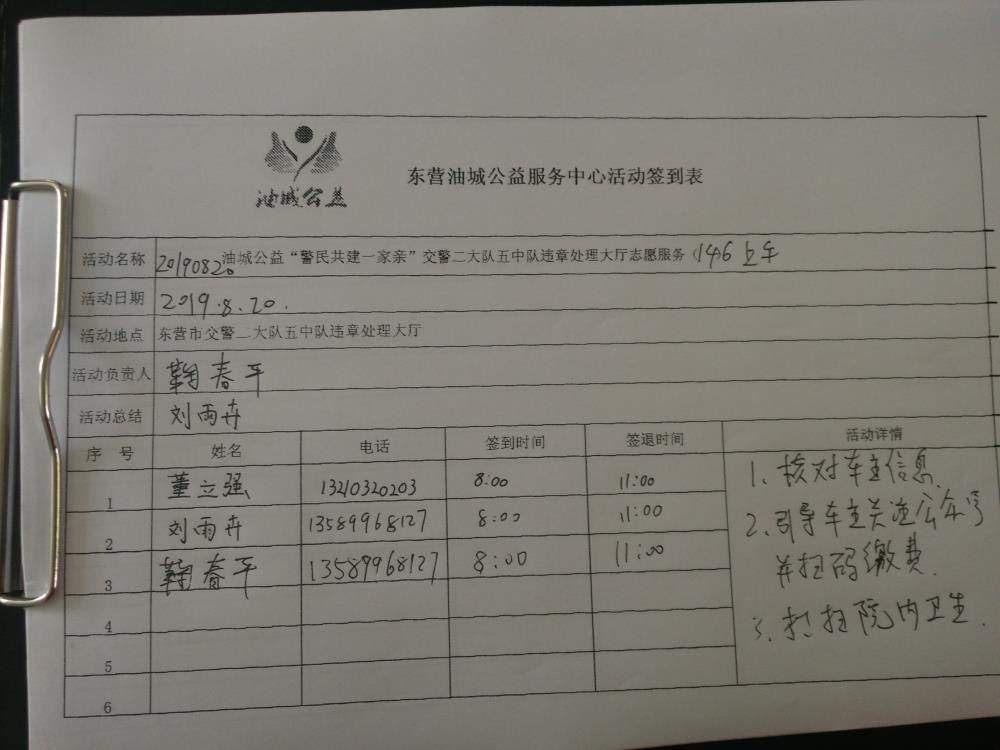 油城公益
东营油城公益服务中心活动签到表
活动名称 20190820油城公益“警民共建一家亲”交警二大队五中队违章处理大厅志愿服务（146 上午
活动日期 2019.8.20.
活动地点 东营市交警二大队五中队违章处理大厅
活动负责人 鞠春平
活动总结 刘雨卉
序 号 姓名 电话 签到时间 签退时间 活动详情
1 董立强 13210320203 8:00 11:00
2 刘雨卉 13589968127 8:00 11:00
3 鞠春平 13589968127 8:00 11:00
4
5
6
1、核对车主信息、
2、引导车主关注公众号
并扫码缴费.
3、打扫院内卫生.